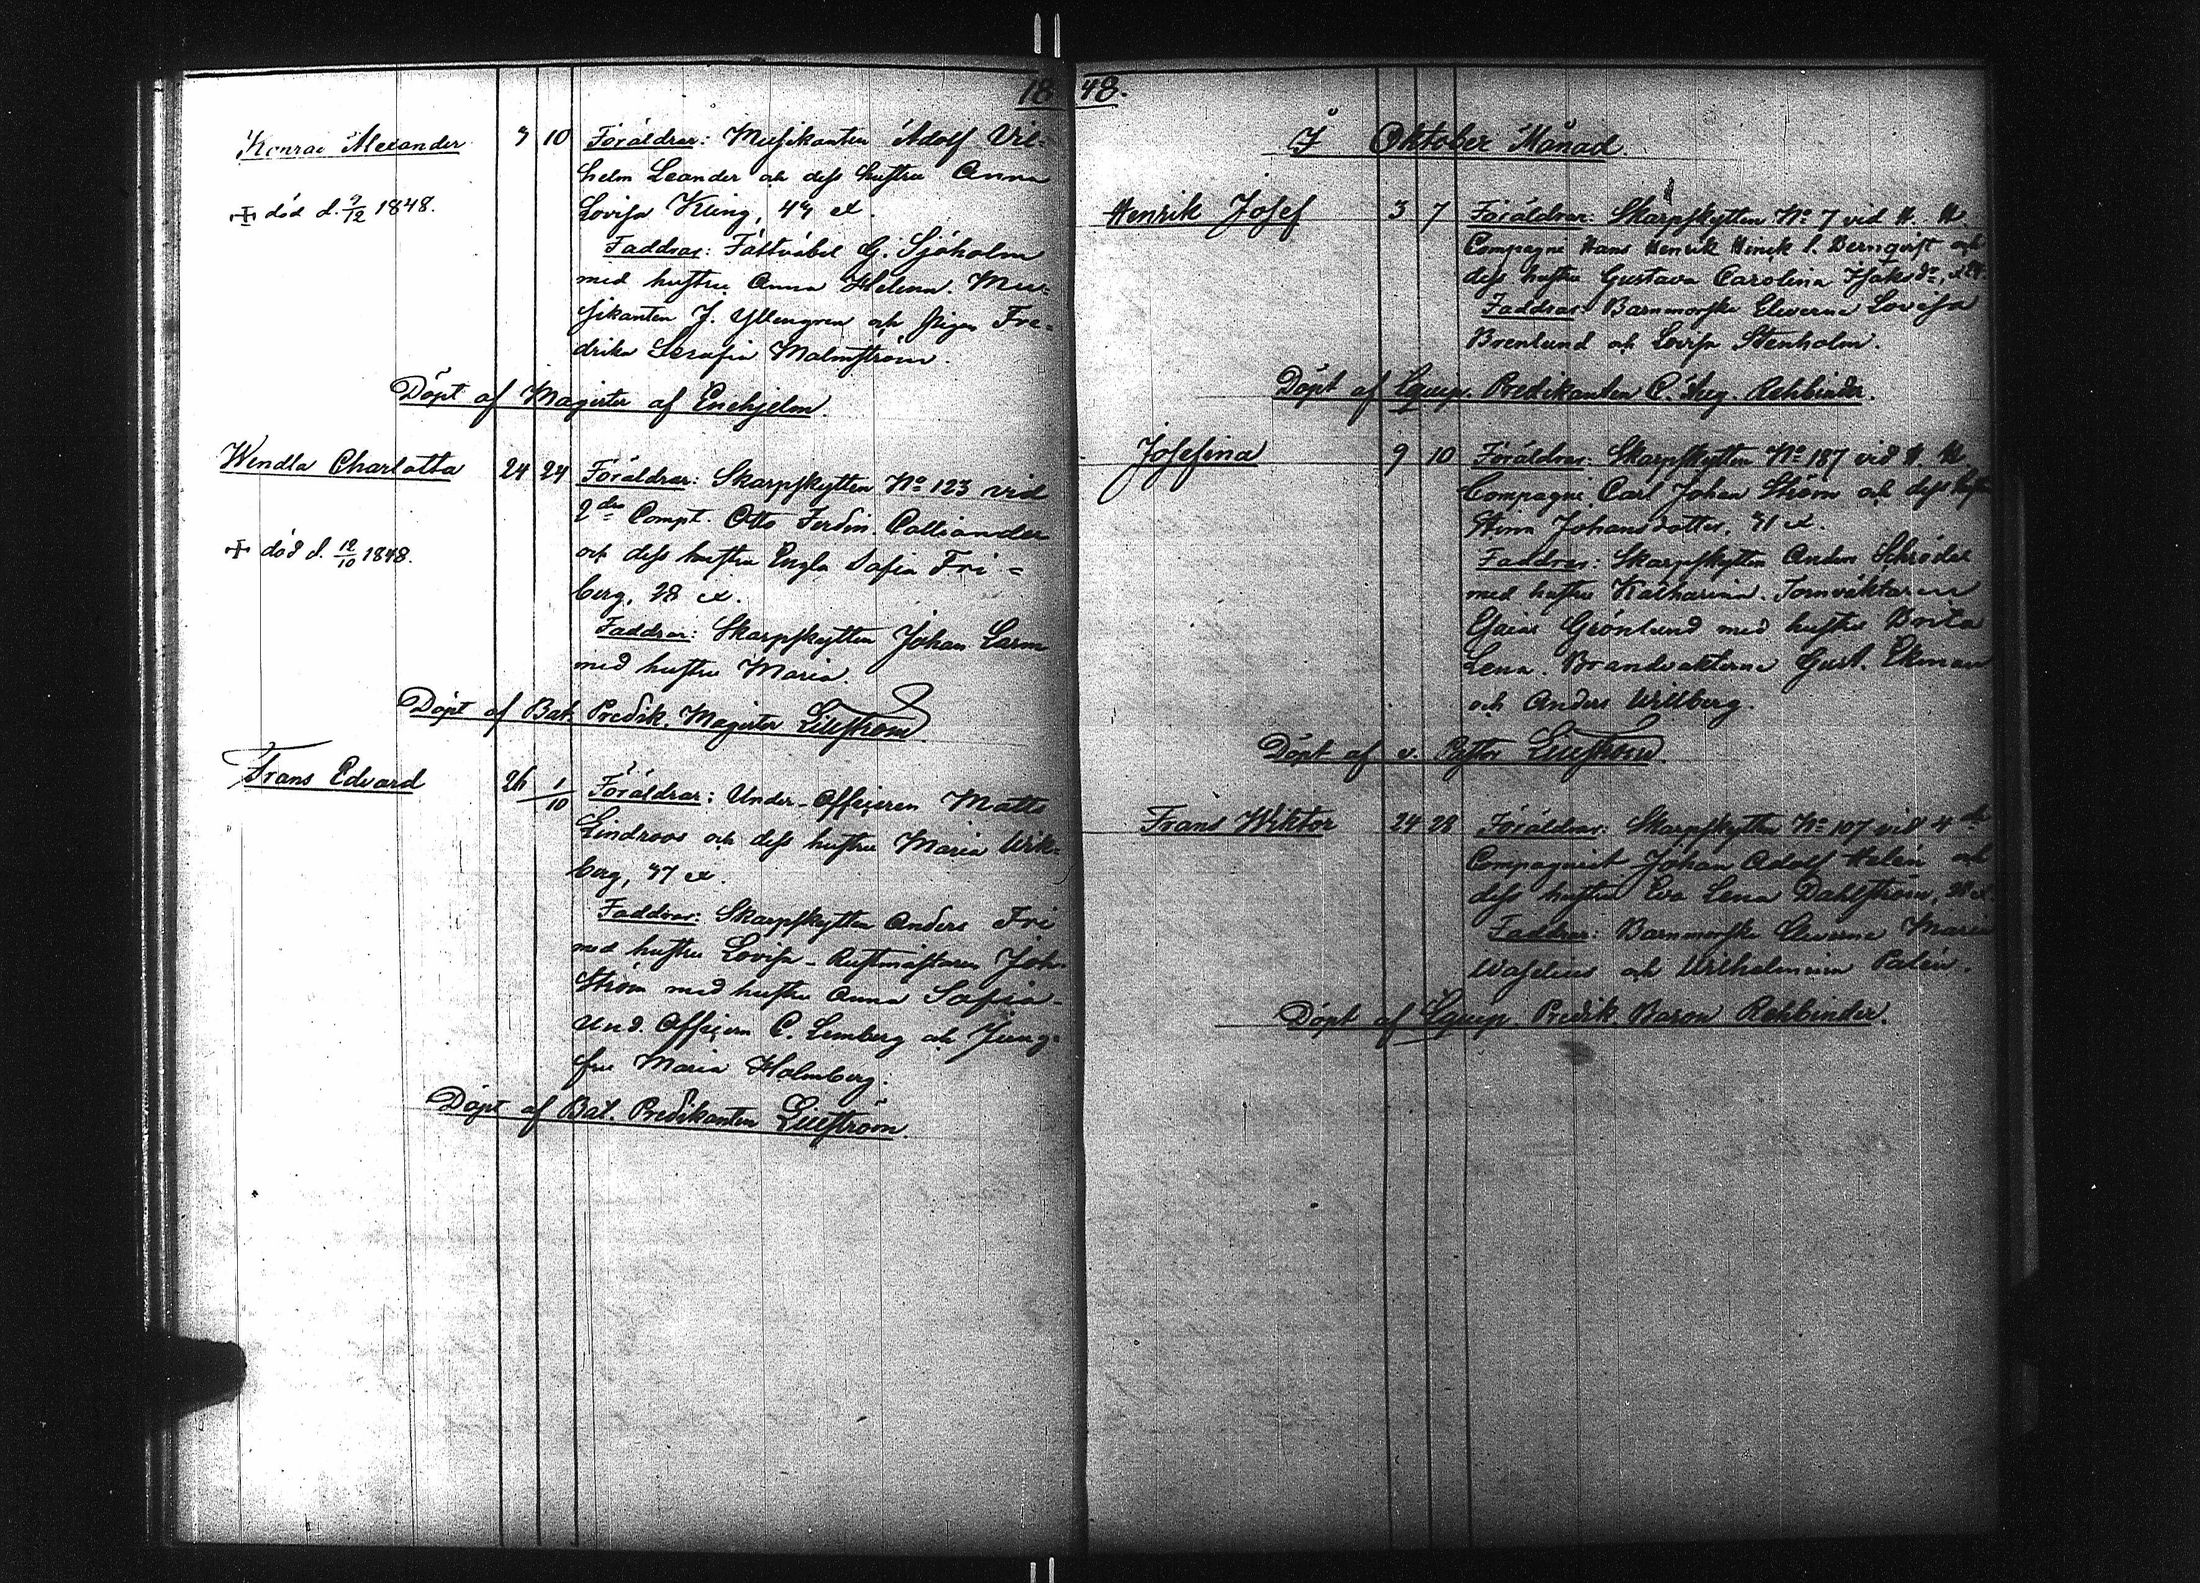 1848.
Konrad Alexander 3 10 Föräldrar: Musikanten Adolf Vil-
helm Leander och dess hustru Anna
död d. 9/12 1848. Lovisa Kling, 43 
Faddrar: Fältväbel G. Sjöholm
med hustru Anna Helena. Mu-
sikanten J. Yllengren och pigan Fre-
drika Serafia Malmström.
Döpt af Magister af Enehjelm.
Wendla Charlotta 24 24 Föräldrar: Skarpskytten No 123 vid
2dra Compt. Otto Ferdin. Calliander
död d. 12/10 1848. och dess hustru Engla Sofia Fri-
berg, 28 
Faddrar: Skarpskytten Johan Larm
med hustru Maria.
Döpt af Bat. Predik. Magister Lillström
Frans Edvard 26 1/10 Föräldrar: Under-Officeren Matts
Lindroos och dess hustru Maria Wik-
berg, 37 
Faddrar: Skarpskytten Anders Fri
med hustru Lovisa - Rustmästaren Joh.
Ström med hustru Anna Sofia -
Und. Officern C. Lemberg och Jung-
fru Maria Holmberg.
Döpt af Bat. Predikanten Lillström.
I Oktober Månad.
Henrik Josef 3 7 Föräldrar: Skarpskytten No 7 vid 
Compagne Hans Henrik Henek l. Bernqvist och
dess hustru Gustava Carolina Isaksdr,
Faddrar: Barnmorske Eleverne Lovisa
Brenlund och Lovisa Stenholm.
Döpt af Equip. Predikanten C. Aug. Rehbinder.
Josefina 9 10 Föräldrar: Skarpskytten No 187 vid 
Compagnie Carl Johan Ström och dess hustru
Stina Johansdotter,
Faddrar: Skarpskytten Anders Schröder
med hustru Katharina. Tornväktaren
Esaias Grönlund med hustru Dorta
Lena. Brandvakterne Gust. Ekman
och Anders Willberg.
Döpt af v. Pastor Lillström.
Frans Wiktor 24 28 Föräldrar: Skarpskytten No 107 vid 4de
Compagniet Johan Adolf Helén och
dess hustru Eva Lena Dahlström, 28
Faddrar: Barnmorske Eleverna Maria
Waselius och Wilhelmina Palén.
Döpt af Equip. Predik. Baron Rehbinder.